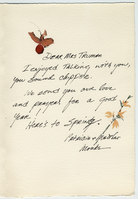 Dear Mrs Truman
I enjoyed talking with you,
you sound chipper.
We send you our love
and prayers for a good
year!
Here's to Spring.
Patricia &